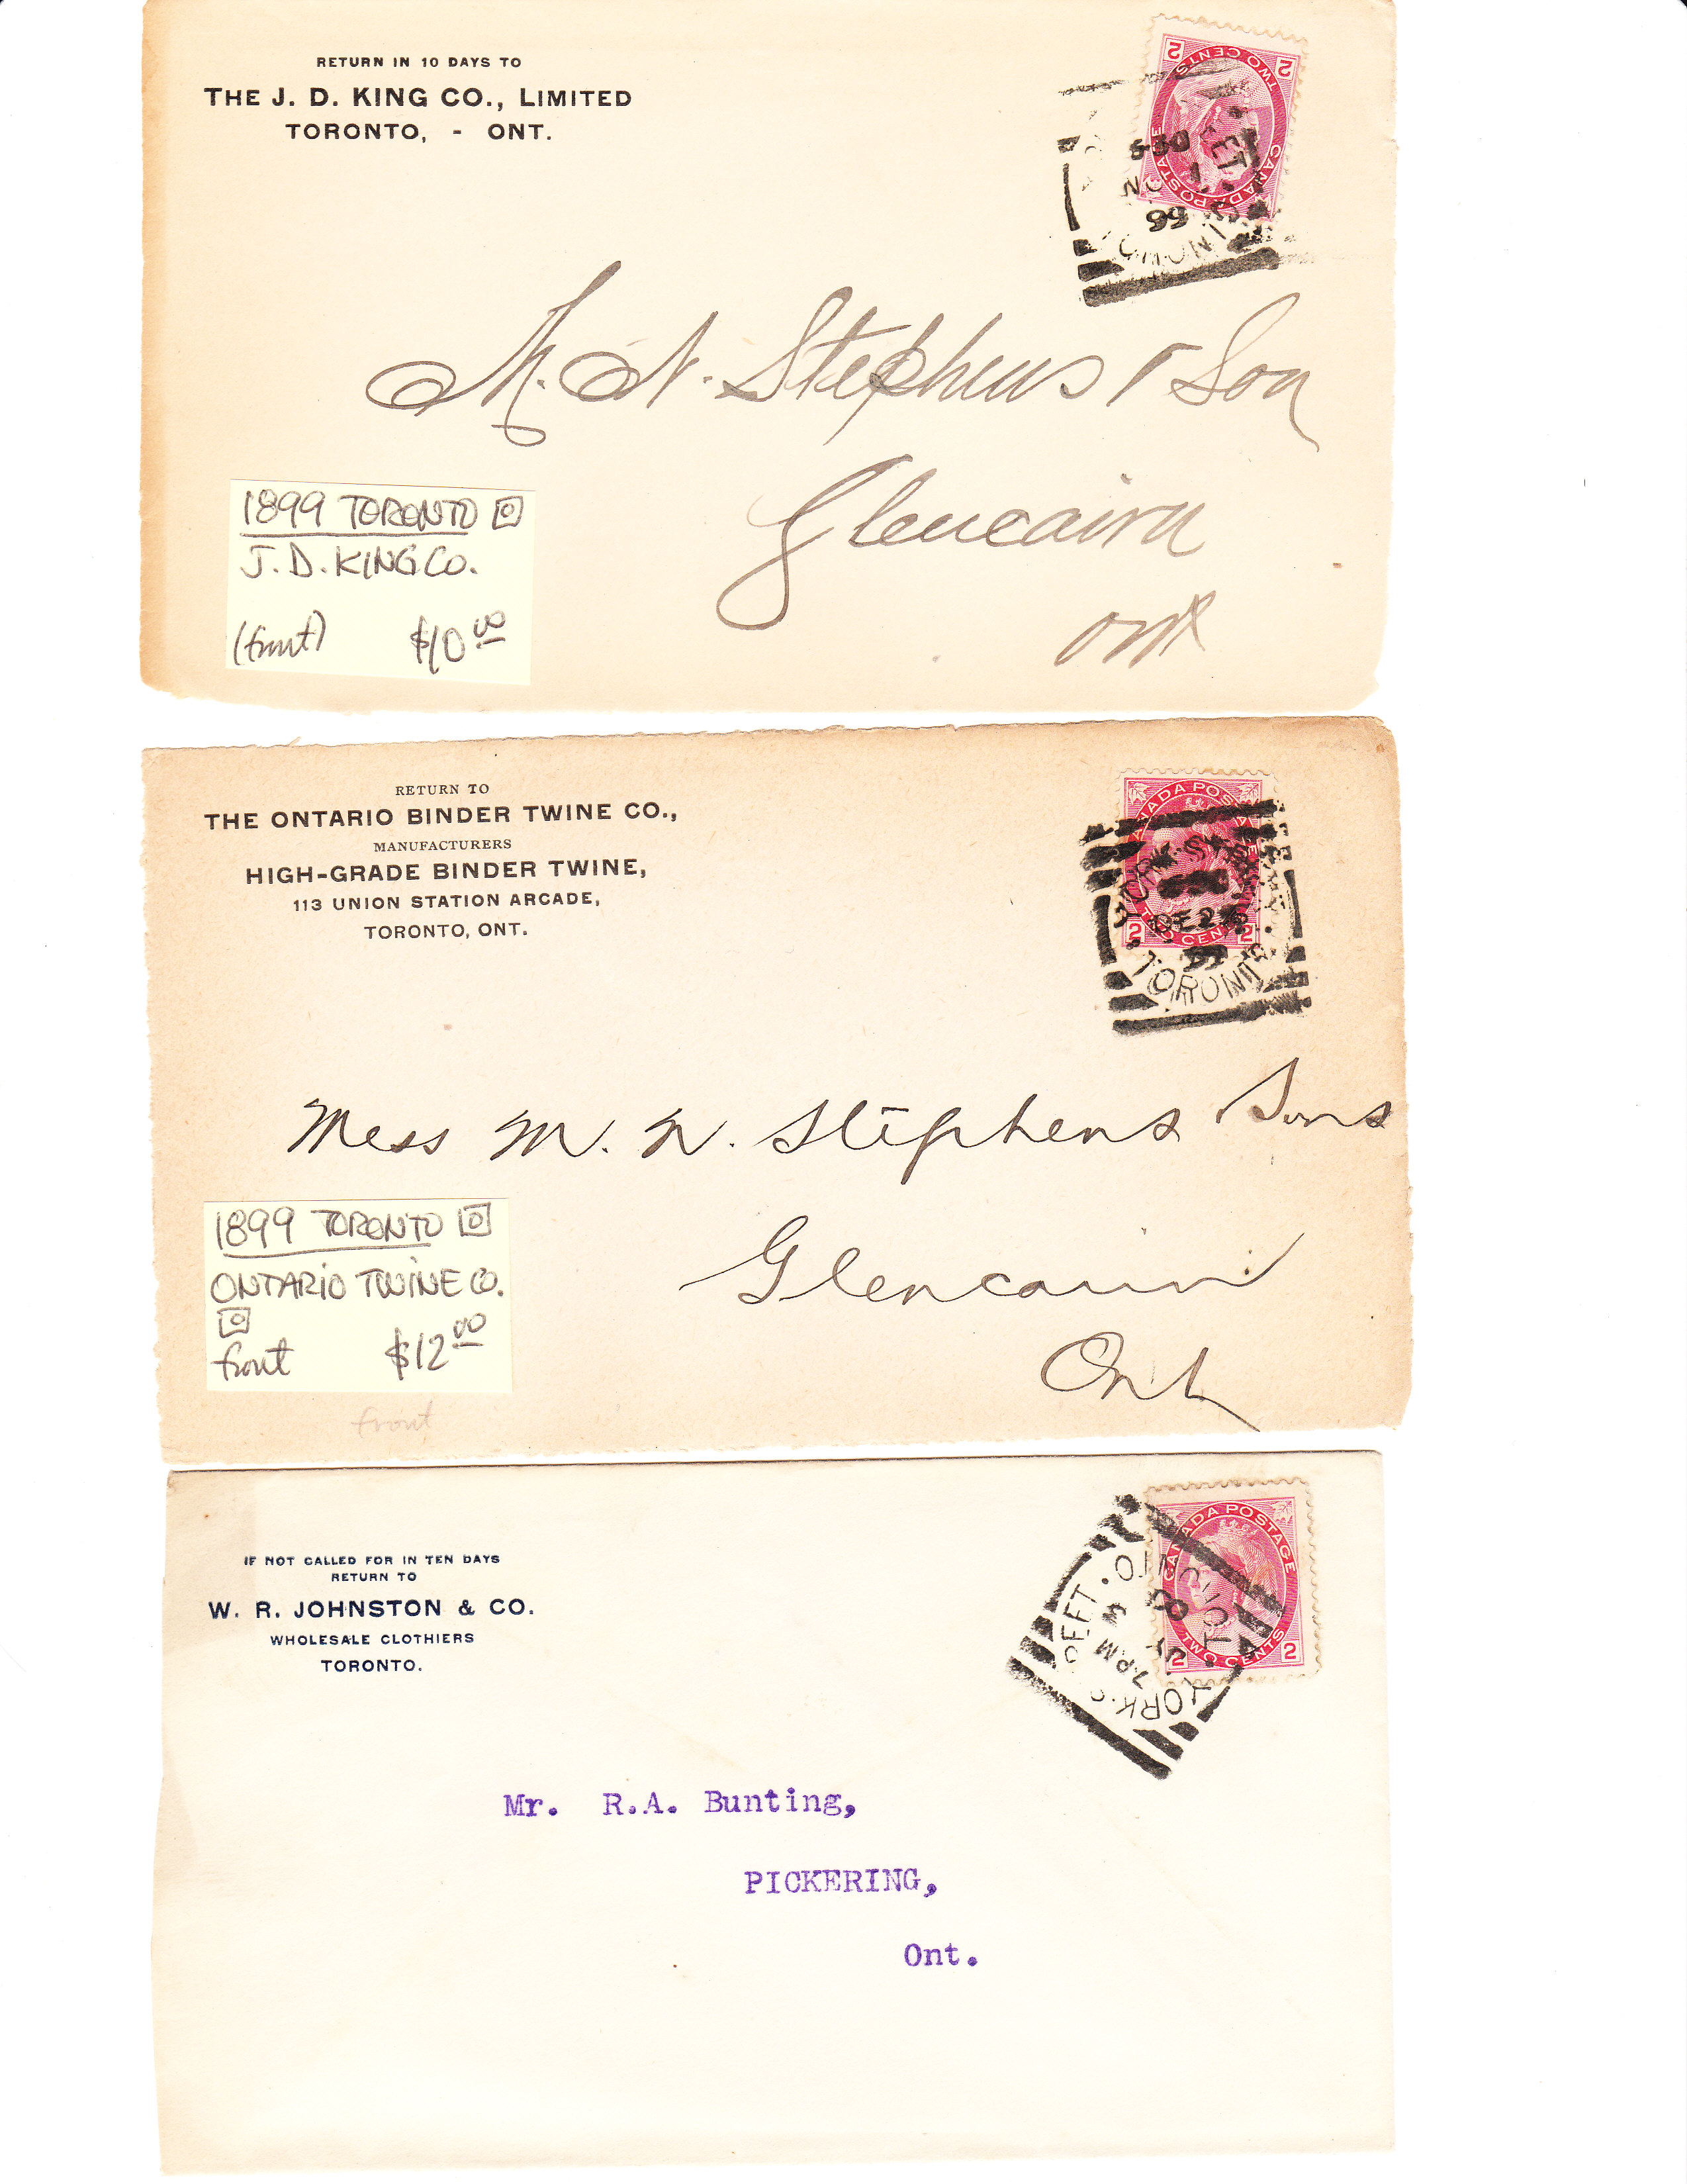 RETURN IN 10 DAYS TO
THE J. D. KING CO., LIMITED
TORONTO, - ONT.
TWO CENTS
2 2
CANADA POSTAGE
99
M. N. Stephens & Son
Glencairn
Ont
1899 TORONTO
J. D. KING CO.
(front) $10.00
RETURN TO
THE ONTARIO BINDER TWINE CO.,
MANUFACTURERS
HIGH-GRADE BINDER TWINE,
113 UNION STATION ARCADE,
TORONTO, ONT.
CANADA POSTAGE
2 TWO CENTS 2
YORK-ST
DE 2
99
TORONTO
Mess M. N. Stephens Sons
Glencairn
Ont
1899 TORONTO
ONTARIO TWINE CO.
front $12.00
front
IF NOT CALLED FOR IN TEN DAYS
RETURN TO
W. R. JOHNSTON & CO.
WHOLESALE CLOTHIERS
TORONTO.
CANADA POSTAGE
2 TWO CENTS 2
YORK
7 PM
TORONTO
Mr. R.A. Bunting,
PICKERING,
Ont.